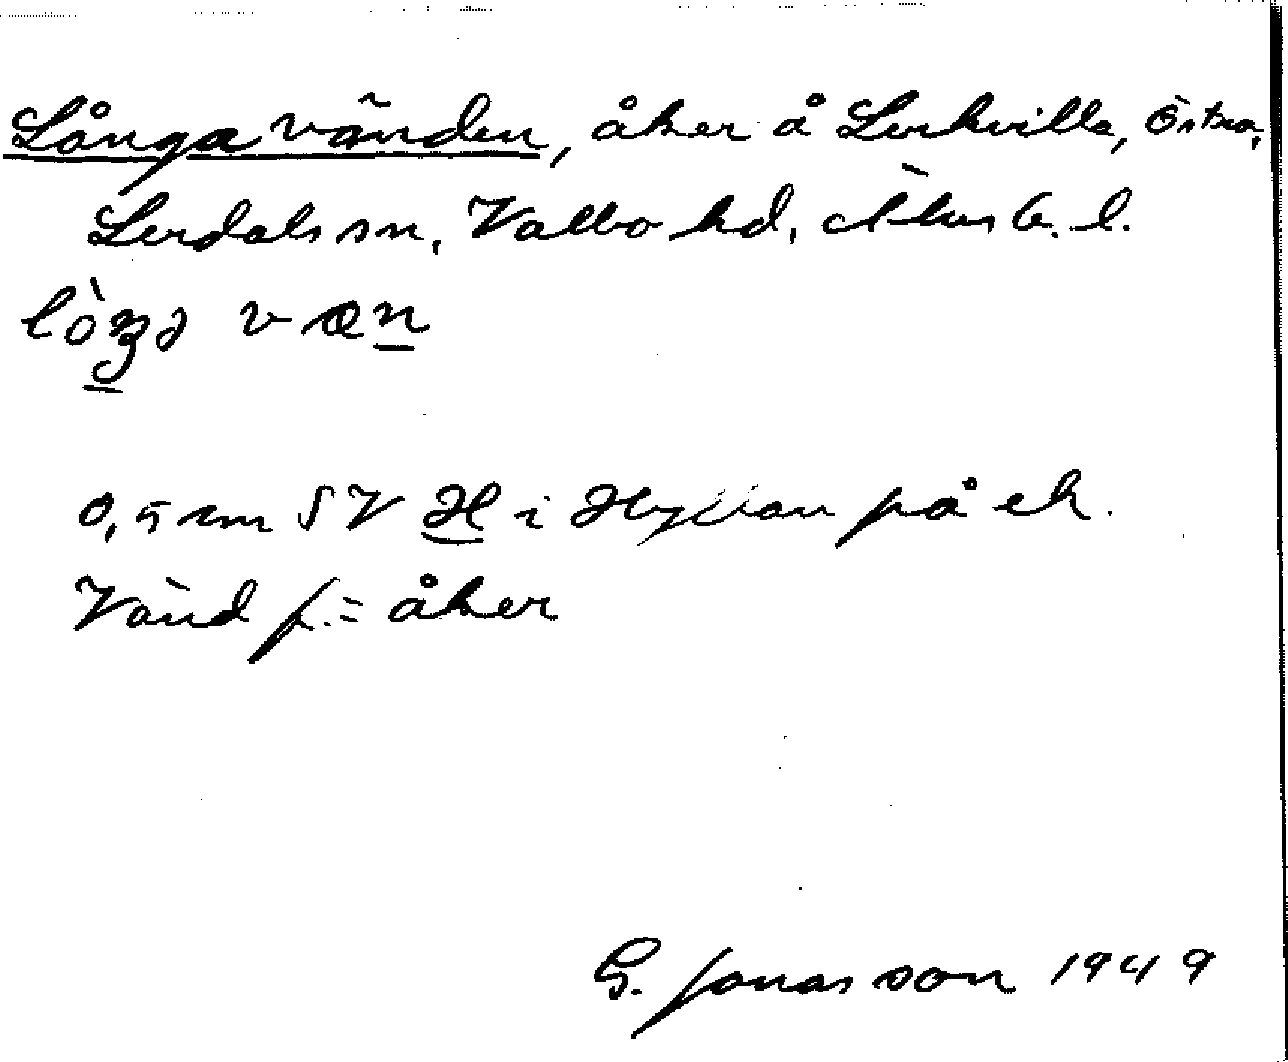 Långa vänden, åker å Lerkvilla, Östra,
Lerdals sn, Valbo hd, Älvsb. l.
lòŋə væn
0,5 cm SV H i Hyltan på ek.
Vänd f. = åker
G. Jonasson 1949